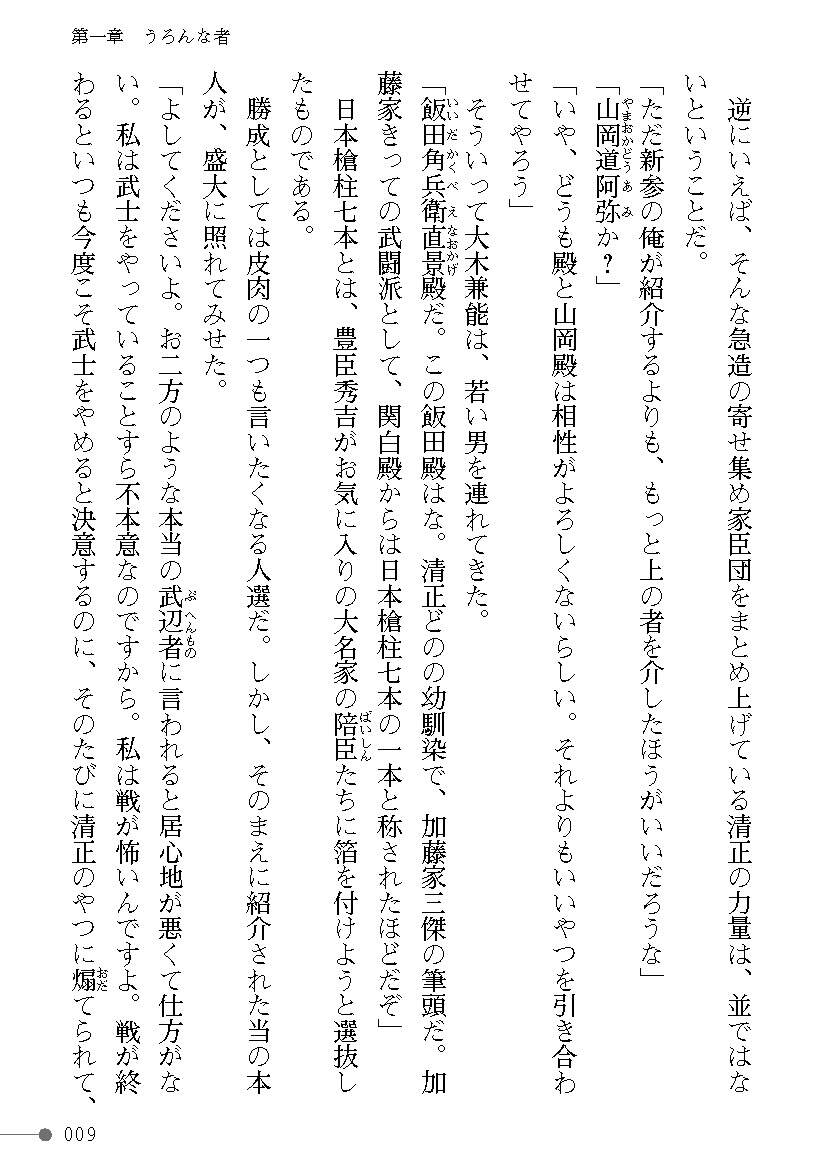 第一章　うろんな者
逆にいえば、そんな急造の寄せ集め家臣団をまとめ上げている清正の力量は、並ではな
いということだ。
「ただ新参の俺が紹介するよりも、もっと上の者を介したほうがいいだろうな」
「山岡道阿弥か？」
やまおかどうあみ
「いや、どうも殿と山岡殿は相性がよろしくないらしい。それよりもいいやつを引き合わ
せてやろう」
そういって大木兼能は、若い男を連れてきた。
「飯田角兵衛直景殿だ。この飯田殿はな。清正どのの幼馴染で、加藤家三傑の筆頭だ。加
いいだかくべえなおかげ
藤家きっての武闘派として、関白殿からは日本槍柱七本の一本と称されたほどだぞ」
日本槍柱七本とは、豊臣秀吉がお気に入りの大名家の陪臣たちに箔を付けようと選抜し
ばいしん
たものである。
勝成としては皮肉の一つも言いたくなる人選だ。しかし、そのまえに紹介された当の本
人が、盛大に照れてみせた。
「よしてくださいよ。お二方のような本当の武辺者に言われると居心地が悪くて仕方がな
ぶへんもの
い。私は武士をやっていることすら不本意なのですから。私は戦が怖いんですよ。戦が終
わるといつも今度こそ武士をやめると決意するのに、そのたびに清正のやつに煽てられて、
おだ
009